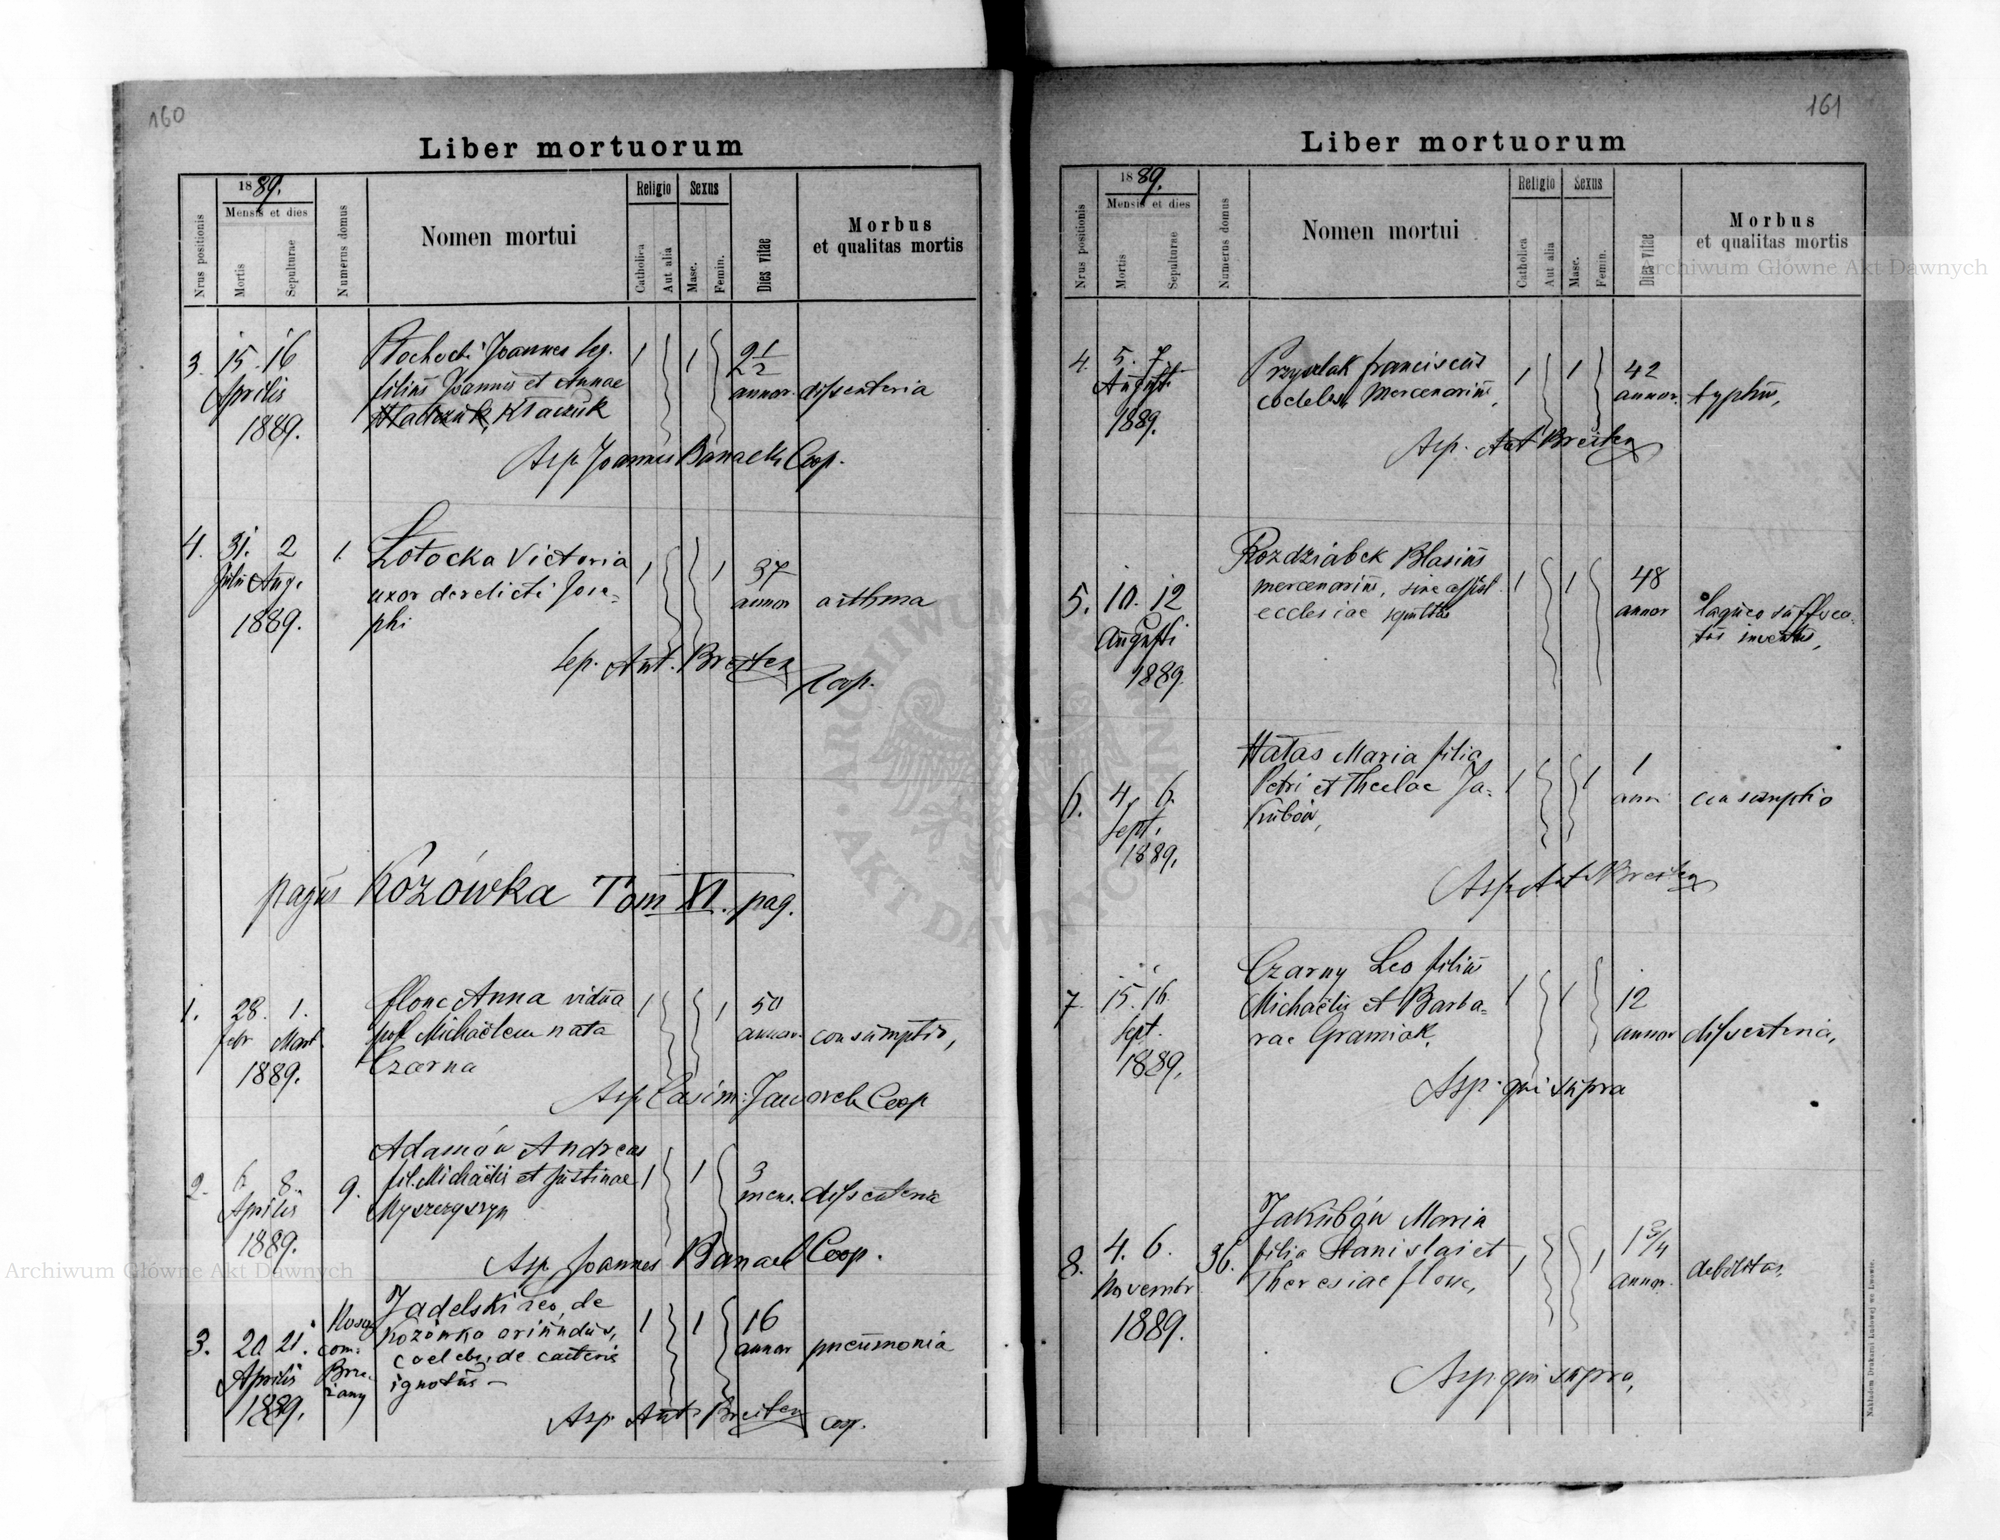 160
Liber mortuorum
Nrus positionis
1889.
Mensis et dies
Mortis
Sepulturae
Numerus domus
Nomen mortui
Religio
Catholica
Aut alia
Sexus
Masc.
Femin.
Dies vitae
Morbus
et qualitas mortis
3. 15. 16 Joannes leg. 1 1 2 1/2
Aprilis filius Joannis et Annae annor. dissenteria
1889. Kłaczuk
Asp. Joannes Banach Coop.
4. 31. 2 1. Łotocka Victoria 1 1 37
Julii Aug. uxor derelicti Jose= annor asthma
1889. phi
Sep. Ant. Breiter
Coop.
pagus Kozówka Tom XI. pag.
1. 28. 1. Flonc Anna vidua 1 1 50
febr Mart. post Michaëlem nata annor. consumptio,
1889. Czarna
Asp. Casim: Jaworek Coop
2. 6 8. 9. Adamów Andreas 1 1 3
Aprilis fil. Michaëlis et Justinae mens. dissenteria
1889. Myszczyszyn
Asp. Joannes Banach Coop.
3. 20 21. Jadelski Leo, de 1 1 16
Aprilis Kozówka oriundus, annor pneumonia
1889. com. Brze=żany coelebs, de caeteris
ignotus —
Asp. Ant. Breiter Coop.
161
Liber mortuorum
Nrus positionis
1889.
Mensis et dies
Mortis
Sepulturae
Numerus domus
Nomen mortui
Religio
Catholica
Aut alia
Sexus
Masc.
Femin.
Dies vitae
Morbus
et qualitas mortis
4. 5. 7. Przyszlak Franciscus 1 1 42
Augusti coelebs, mercenarius, annor. typhus,
1889.
Asp. Ant Breiter
5. 10. 12 Rozdziabek Blasius 1 1 48
Augusti mercenarius, sine assist. annor laqueo suffoca=
1889. ecclesiae sepultus tus inventus,
6. 4 6. Hałas Maria filia 1 1 1
Sept. Petri et Theclae Ja= anni consumptio
1889. kubów,
Asp. Ant. Breiter
7 15. 16. Czarny Leo filius 1 1 12
Sept. Michaëlis et Barba= annor dissenteria,
1889. rae Gramiak,
Asp. qui supra
8. 4. 6. 36. Jakubów Maria 1 1 1 3/4
Novembr filia Stanislai et annor. debilitas,
1889. Theresiae Flonc,
Asp. qui supra,
Nakładem Drukarni Ludowej we Lwowie.
Archiwum Główne Akt Dawnych
Archiwum Główne Akt Dawnych
ARCHIWUM GŁÓWNE AKT DAWNYCH